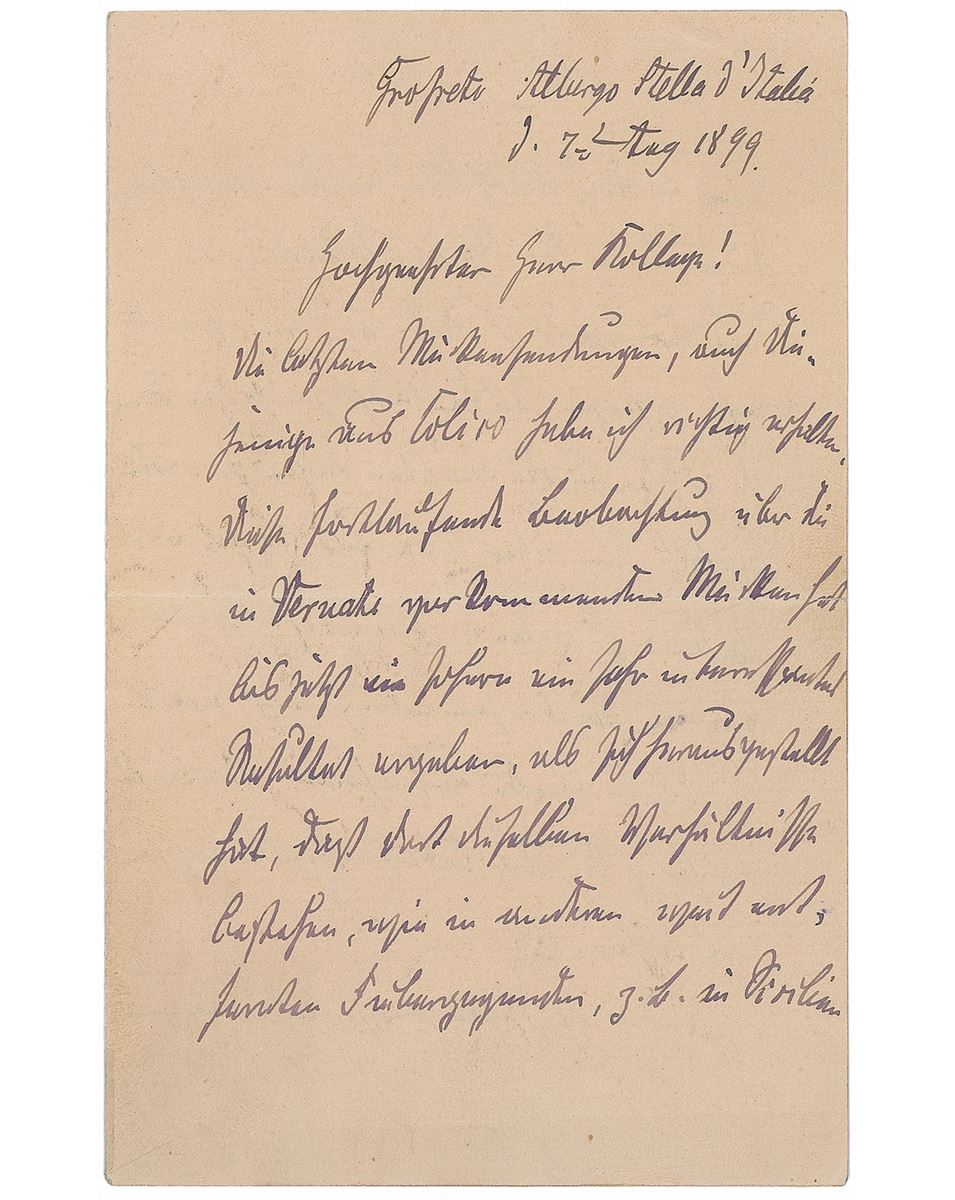 Grosseto Albergo Stella d'Italia
d. 7t Aug 1899.
Hochgeehrter Herr Kollege!
Die letzten Mückensendungen, auch die-
jenige aus Colico habe ich richtig erhalten.
Diese fortlaufende Beobachtung über die
in Vernate vorkommenden Mücken hat
bis jetzt insofern ein sehr interessantes
Resultat ergeben, als sich herausgestellt
hat, daß dort dieselben Verhältnisse
bestehen, wie in anderen weit ent-
fernten Fiebergegenden, z. b. in Sicilien